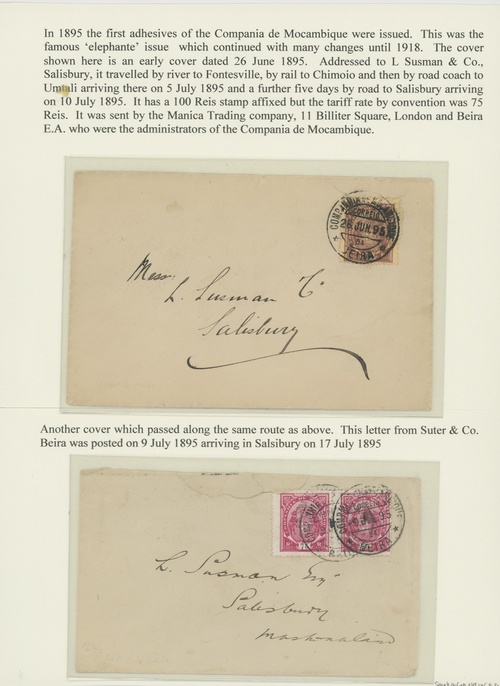 In 1895 the first adhesives of the Compania de Mocambique were issued. This was the
famous 'elephante' issue which continued with many changes until 1918. The cover
shown here is an early cover dated 26 June 1895. Addressed to L Susman & Co.,
Salisbury, it travelled by river to Fontesville, by rail to Chimoio and then by road coach to
Umtali arriving there on 5 July 1895 and a further five days by road to Salisbury arriving
on 10 July 1895. It has a 100 Reis stamp affixed but the tariff rate by convention was 75
Reis. It was sent by the Manica Trading company, 11 Billiter Square, London and Beira
E.A. who were the administrators of the Compania de Mocambique.
26 JUN. 95
BEIRA
Messr.
L. Susman Co
Salisbury
Another cover which passed along the same route as above. This letter from Suter & Co.
Beira was posted on 9 July 1895 arriving in Salsibury on 17 July 1895
BEIRA
L. Susman Esqr
Salisbury
Mashonaland